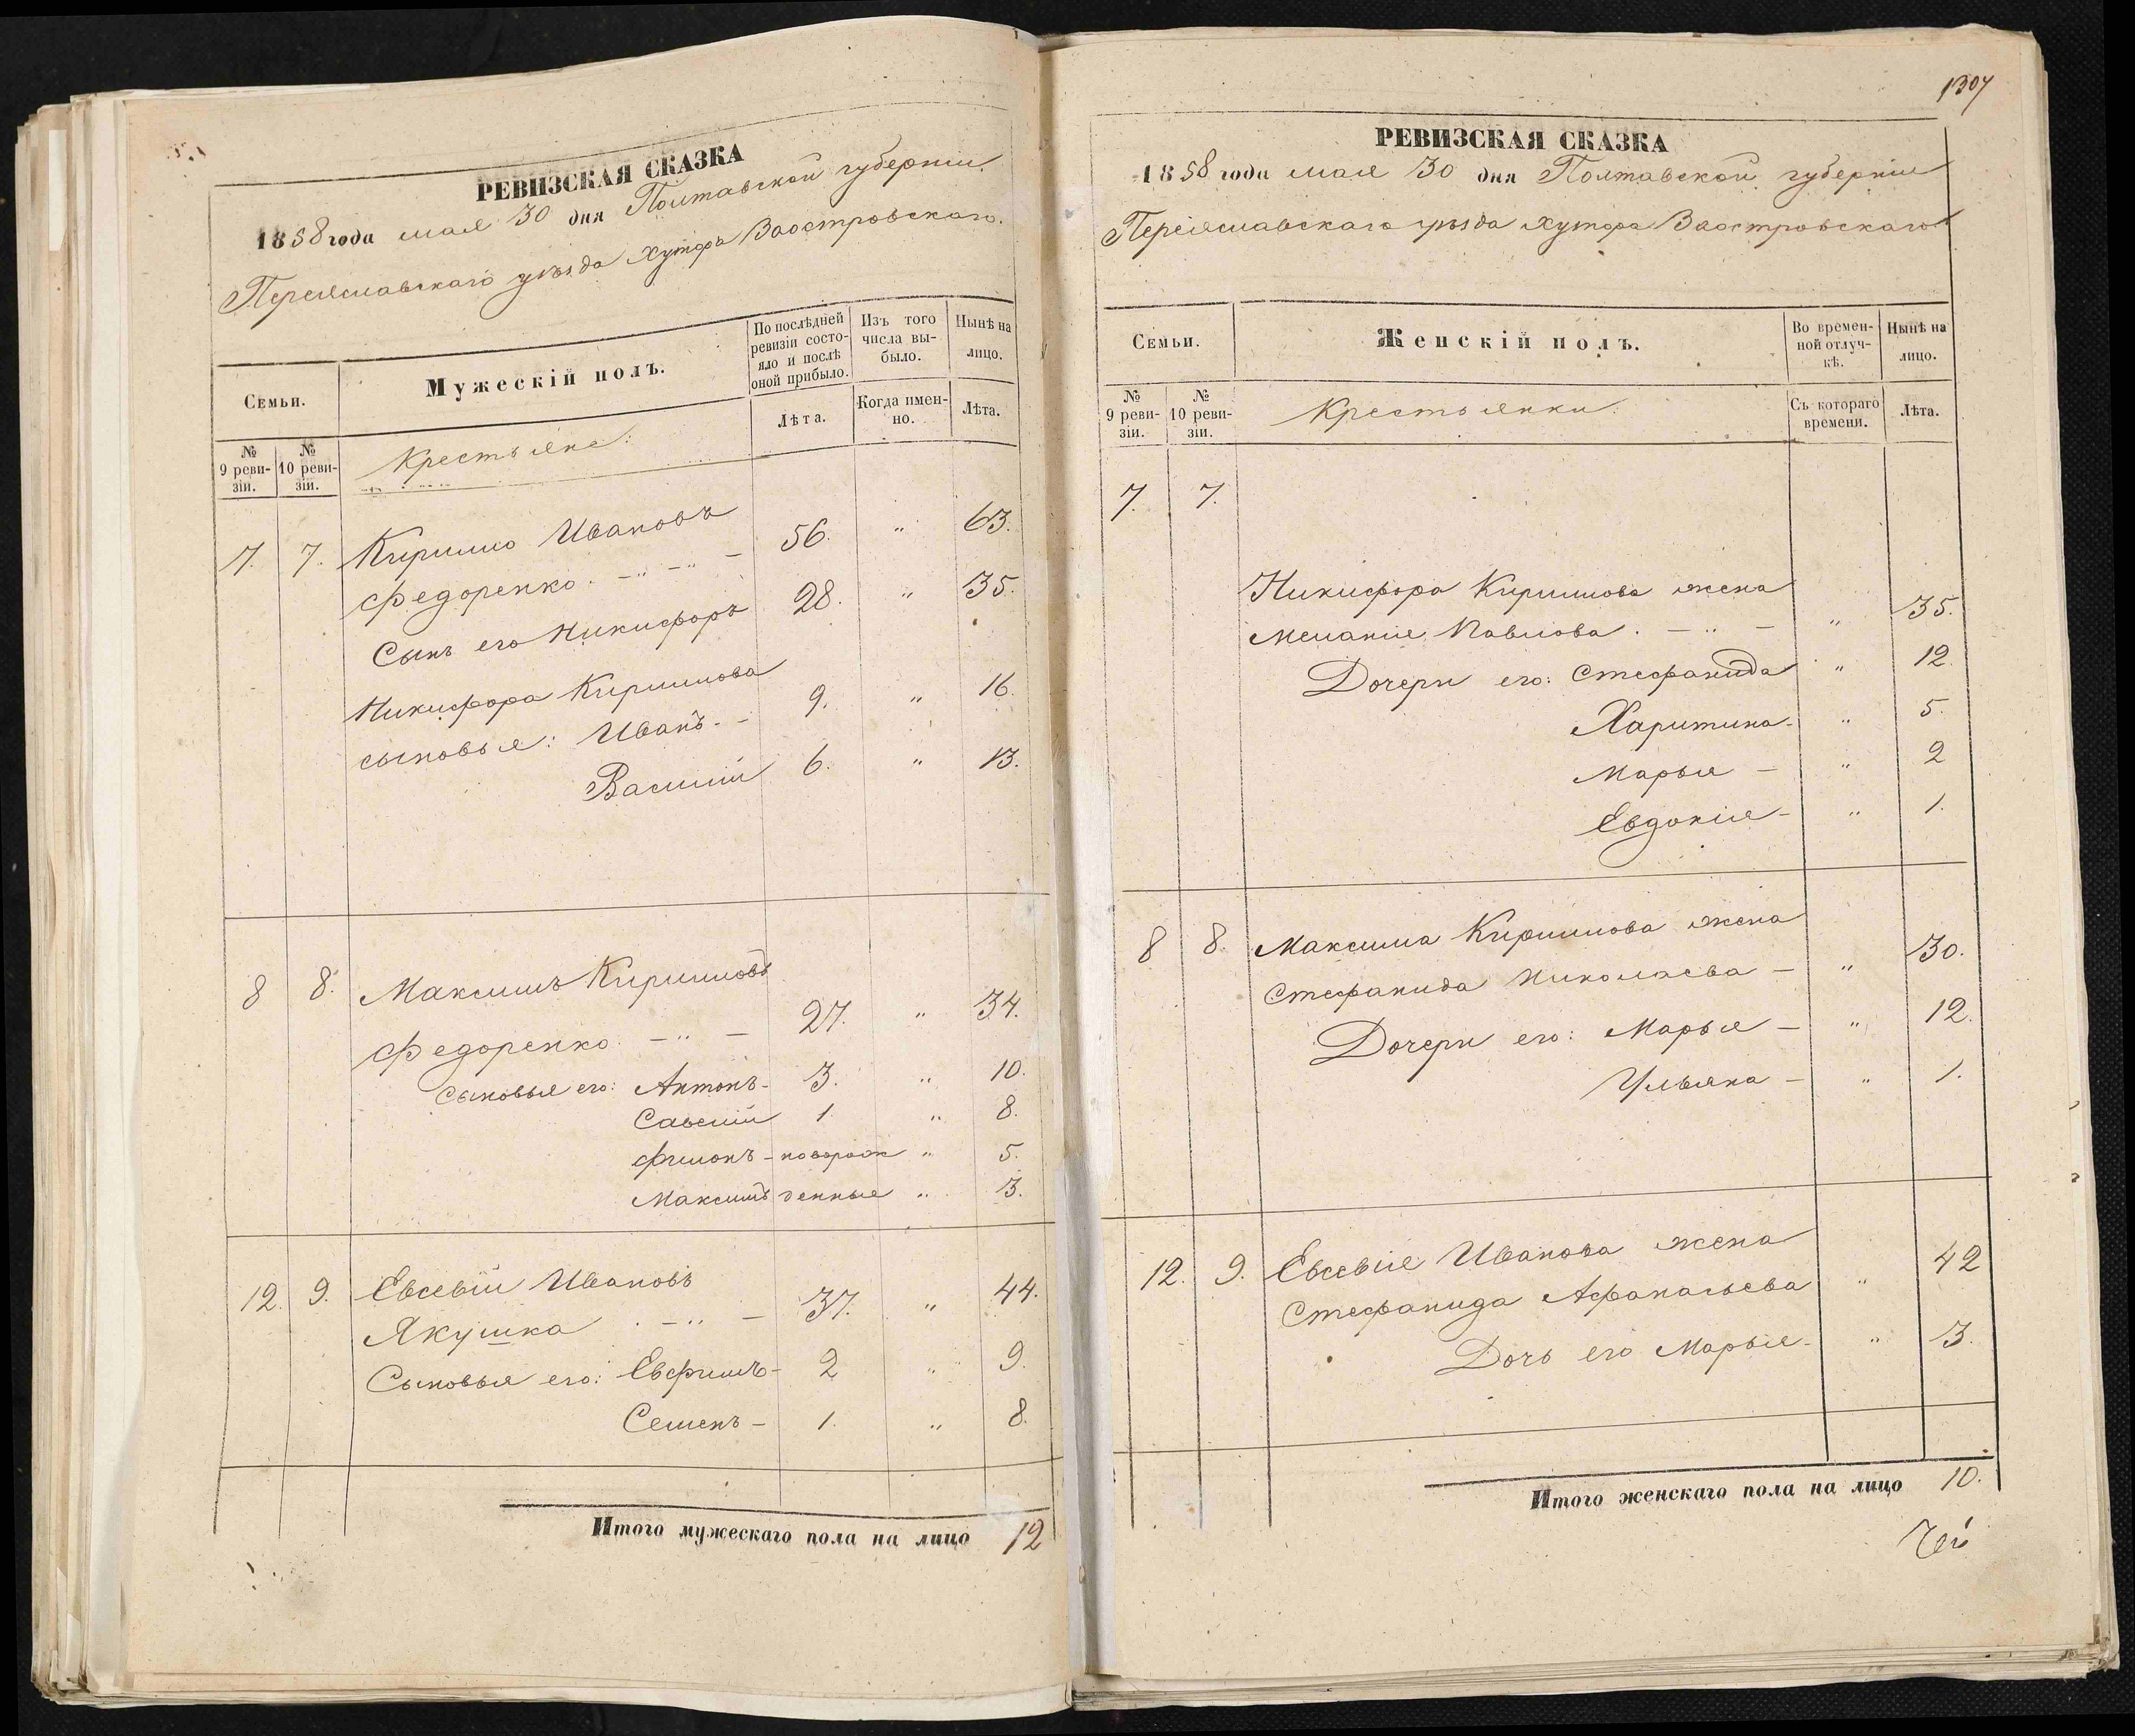 РЕВИЗСКАЯ СКАЗКА
1858 года мая 30 дня Полтавской губерніи
Переяславскаго уѣзда хутора Заостровскаго.
Семьи.
Мужескій полъ.
По послѣдней ревизіи состояло и послѣ оной прибыло.
Изъ того числа выбыло.
Нынѣ на лицо.
№ 9 ревизіи.
№ 10 ревизіи.
Крестьяне:
Лѣта.
Когда именно.
Лѣта.
7. 7. Кирилло Ивановъ
Федоренко. - „ - „ - 56. „ 63.
Сынъ его Никифоръ 28. „ 35.
Никифора Кириллова
сыновья: Иванъ. - 9. „ 16.
Василій 6. „ 13.
8 8. Максимъ Кирилловъ
Федоренко. - „ - 27. „ 34.
Сыновья его: Антонъ - 3. „ 10.
Савелій 1. „ 8.
Филонъ - новорож „ 5.
Максимъ денные „ 3.
12. 9. Евсевій Ивановъ
Якушка . - „ - 37. „ 44.
Сыновья его: Евфимъ - 2 „ 9.
Семенъ - 1. „ 8.
Итого мужескаго пола на лицо 12
1307
РЕВИЗСКАЯ СКАЗКА
1858 года мая 30 дня Полтавской губерніи
Переяславскаго уѣзда хутора Заостровскаго
Семьи.
Женскій полъ.
Во временной отлучкѣ.
Нынѣ на лицо.
№ 9 ревизіи.
№ 10 ревизіи.
Крестьянки:
Съ котораго времени.
Лѣта.
7. 7.
Никифора Кириллова жена
Меланія Павлова. - „ - „ 35.
Дочери его: Стефанида „ 12.
Харитина - „ 5.
Марья - „ 2
Евдокія - „ 1.
8 8. Максима Кириллова жена
Стефанида Николаева - „ 30.
Дочери его: Марья - „ 12.
Ульяна - „ 1.
12. 9. Евсевія Иванова жена
Стефанида Афанасьева „ 42
Дочь его Марья - „ 3.
Итого женскаго пола на лицо 10.